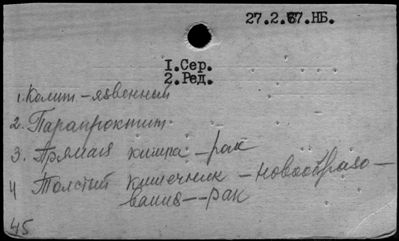 27.2.67.НБ.
1.Сер.
2.Ред.
1. Колит – язвенный
2. Парапроктит.
3. Прямая кишка – рак
4 Толстый кишечник – новообразо–
вания – – рак
45